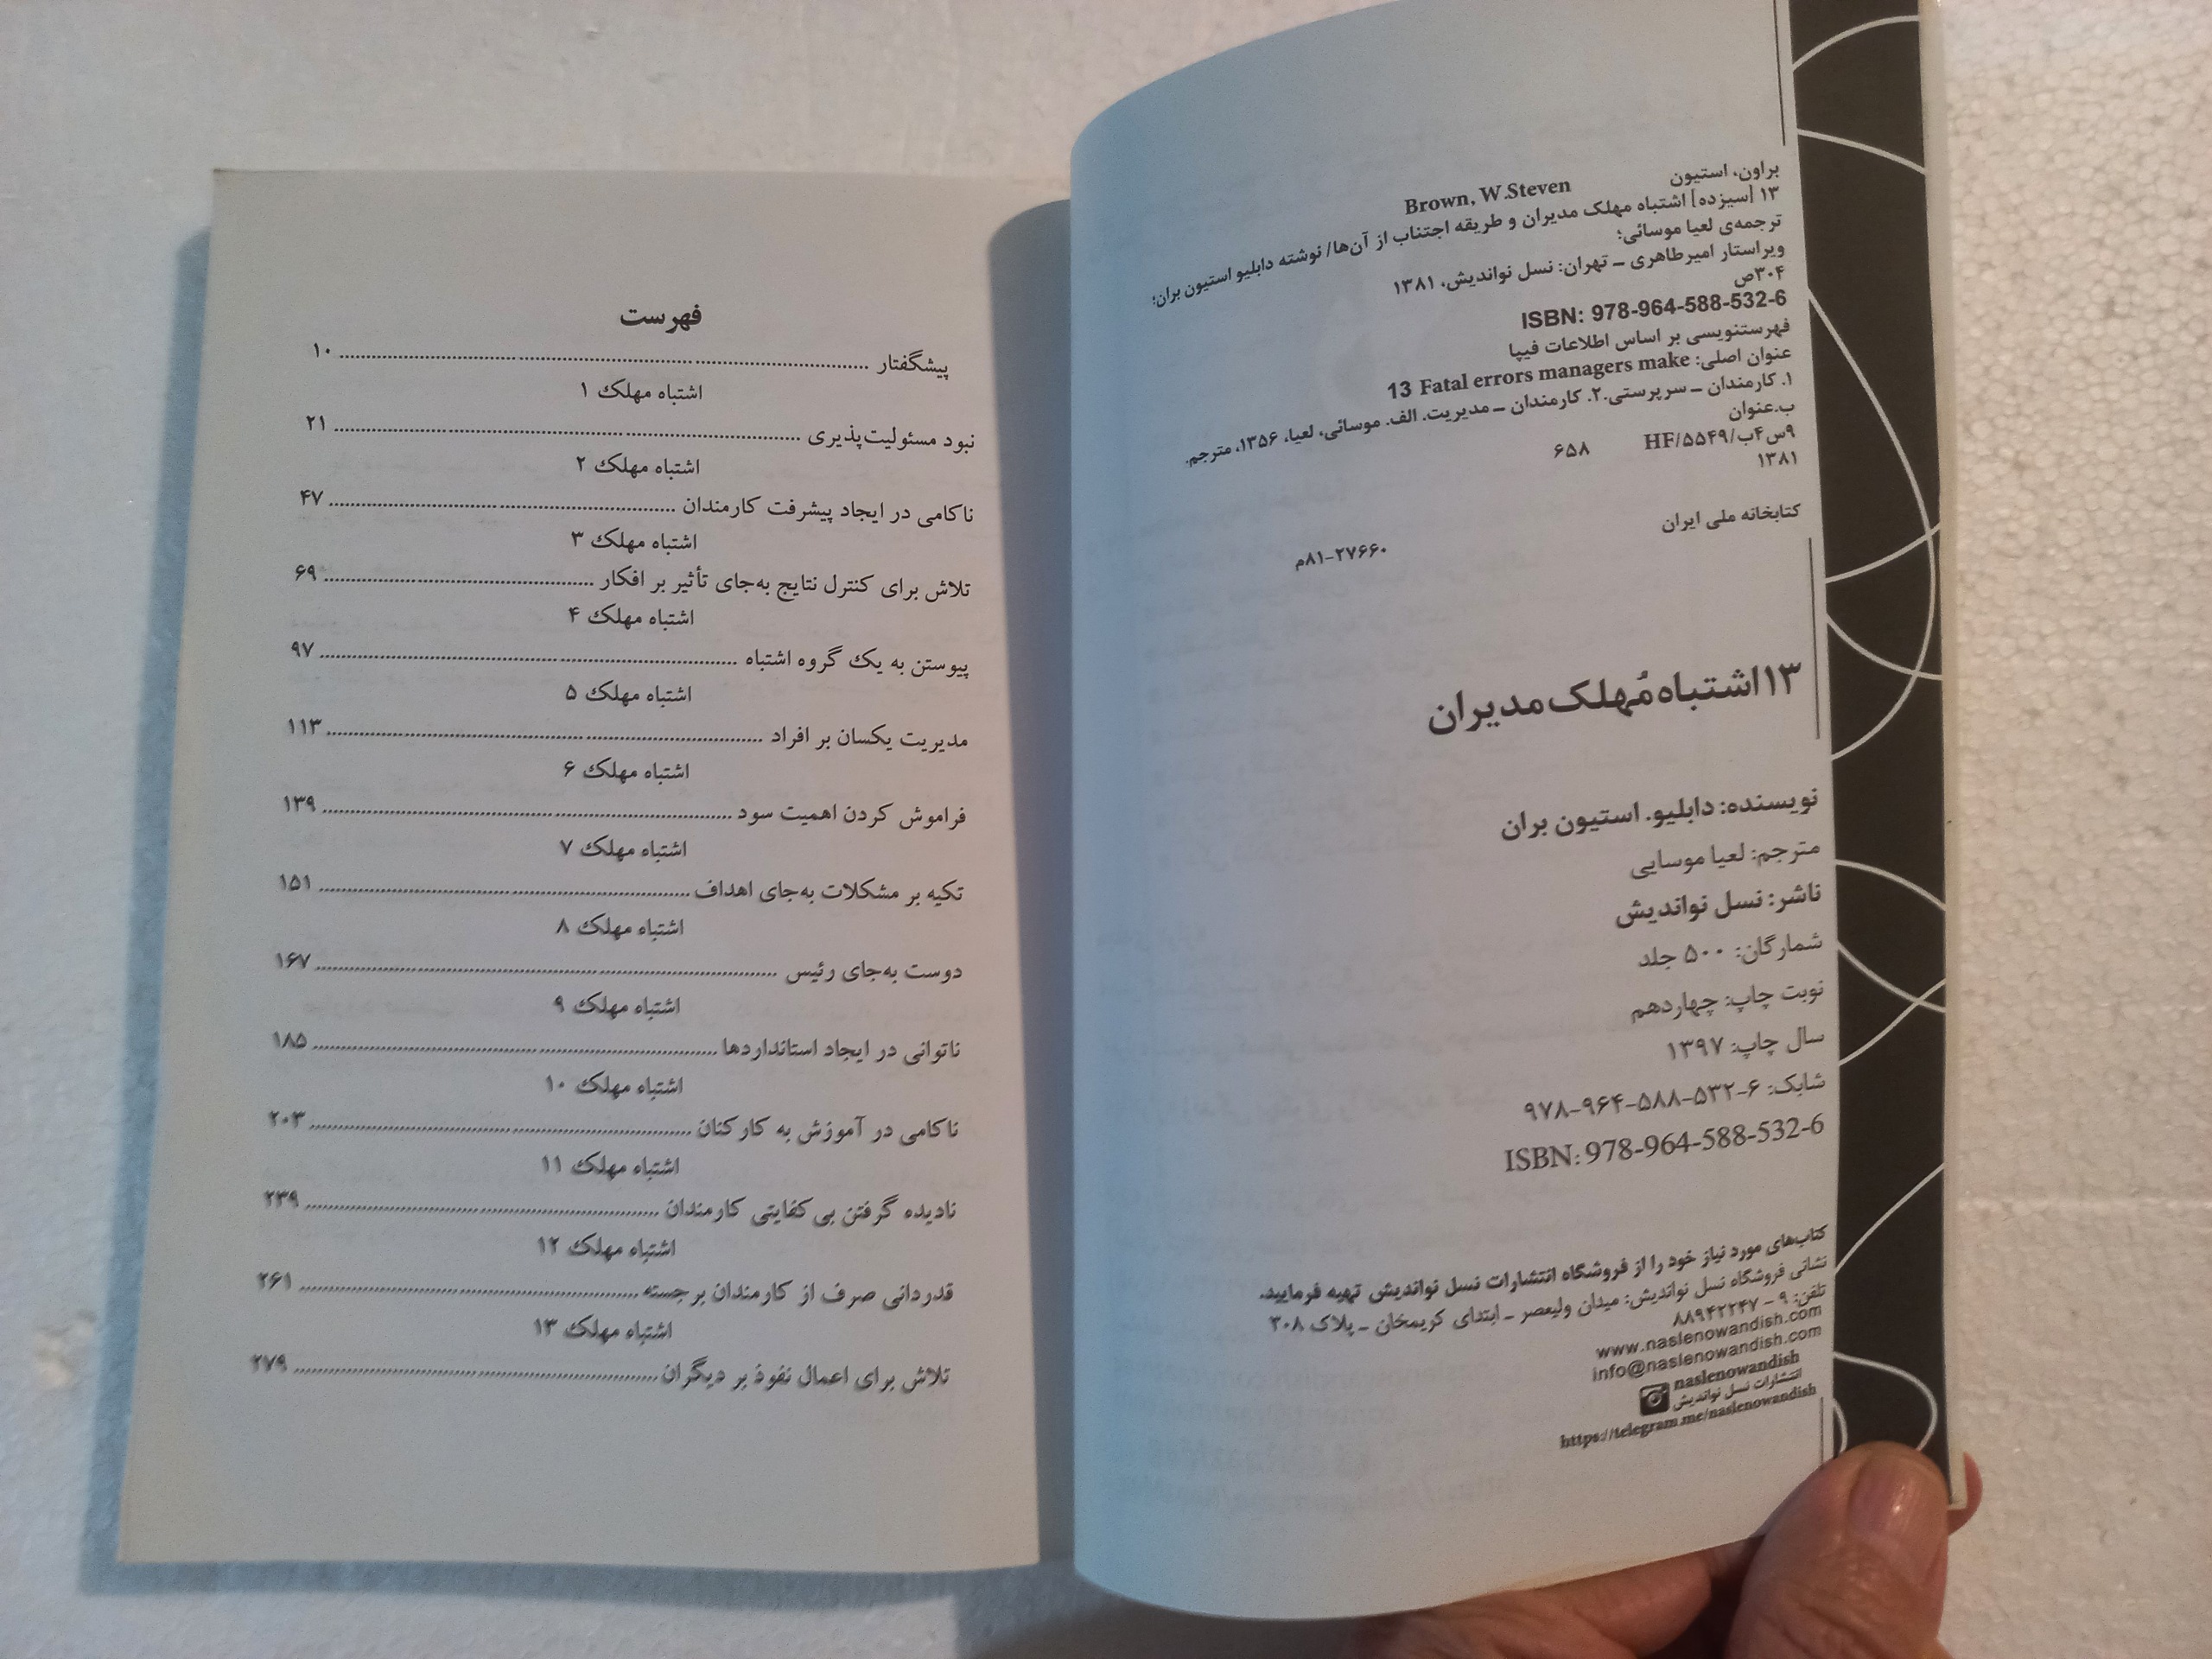 براون، استیون Brown, W.Steven
۱۳ [سیزده] اشتباه مهلک مدیران و طریقه اجتناب از آن‌ها/ نوشته دابلیو استیون بران؛
ترجمه‌ی لعیا موسائی؛
ویراستار امیرطاهری ـ تهران: نسل نواندیش، ۱۳۸۱
۳۰۴ص
ISBN: 978-964-588-532-6
فهرستنویسی بر اساس اطلاعات فیپا
عنوان اصلی: 13 Fatal errors managers make
۱. کارمندان ـ سرپرستی.۲. کارمندان ـ مدیریت. الف. موسائی، لعیا، ۱۳۵۶، مترجم.
ب.عنوان
۹س۴ب/۵۵۴۹/HF ۶۵۸
۱۳۸۱
کتابخانه ملی ایران
۲۷۶۶۰-۸۱م
۱۳اشتباه مُهلک مدیران
نویسنده: دابلیو. استیون بران
مترجم: لعیا موسایی
ناشر: نسل نواندیش
شمارگان: ۵۰۰ جلد
نوبت چاپ: چهاردهم
سال چاپ: ۱۳۹۷
شابک: ۶-۵۳۲-۵۸۸-۹۶۴-۹۷۸
ISBN: 978-964-588-532-6
کتاب‌های مورد نیاز خود را از فروشگاه انتشارات نسل نواندیش تهیه فرمایید.
نشانی فروشگاه نسل نواندیش: میدان ولیعصر ـ ابتدای کریمخان ـ پلاک ۳۰۸
تلفن: ۹ - ۸۸۹۴۲۲۴۷
www.naslenowandish.com
info@naslenowandish.com
naslenowandish
انتشارات نسل نواندیش
https://telegram.me/naslenowandish
فهرست
پیشگفتار ........ ۱۰
اشتباه مهلک ۱
نبود مسئولیت‌پذیری ........ ۲۱
اشتباه مهلک ۲
ناکامی در ایجاد پیشرفت کارمندان ........ ۴۷
اشتباه مهلک ۳
تلاش برای کنترل نتایج به‌جای تأثیر بر افکار ........ ۶۹
اشتباه مهلک ۴
پیوستن به یک گروه اشتباه ........ ۹۷
اشتباه مهلک ۵
مدیریت یکسان بر افراد ........ ۱۱۳
اشتباه مهلک ۶
فراموش کردن اهمیت سود ........ ۱۳۹
اشتباه مهلک ۷
تکیه بر مشکلات به‌جای اهداف ........ ۱۵۱
اشتباه مهلک ۸
دوست به‌جای رئیس ........ ۱۶۷
اشتباه مهلک ۹
ناتوانی در ایجاد استانداردها ........ ۱۸۵
اشتباه مهلک ۱۰
ناکامی در آموزش به کارکنان ........ ۲۰۳
اشتباه مهلک ۱۱
نادیده گرفتن بی‌کفایتی کارمندان ........ ۲۳۹
اشتباه مهلک ۱۲
قدردانی صرف از کارمندان برجسته ........ ۲۶۱
اشتباه مهلک ۱۳
تلاش برای اعمال نفوذ بر دیگران ........ ۲۷۹